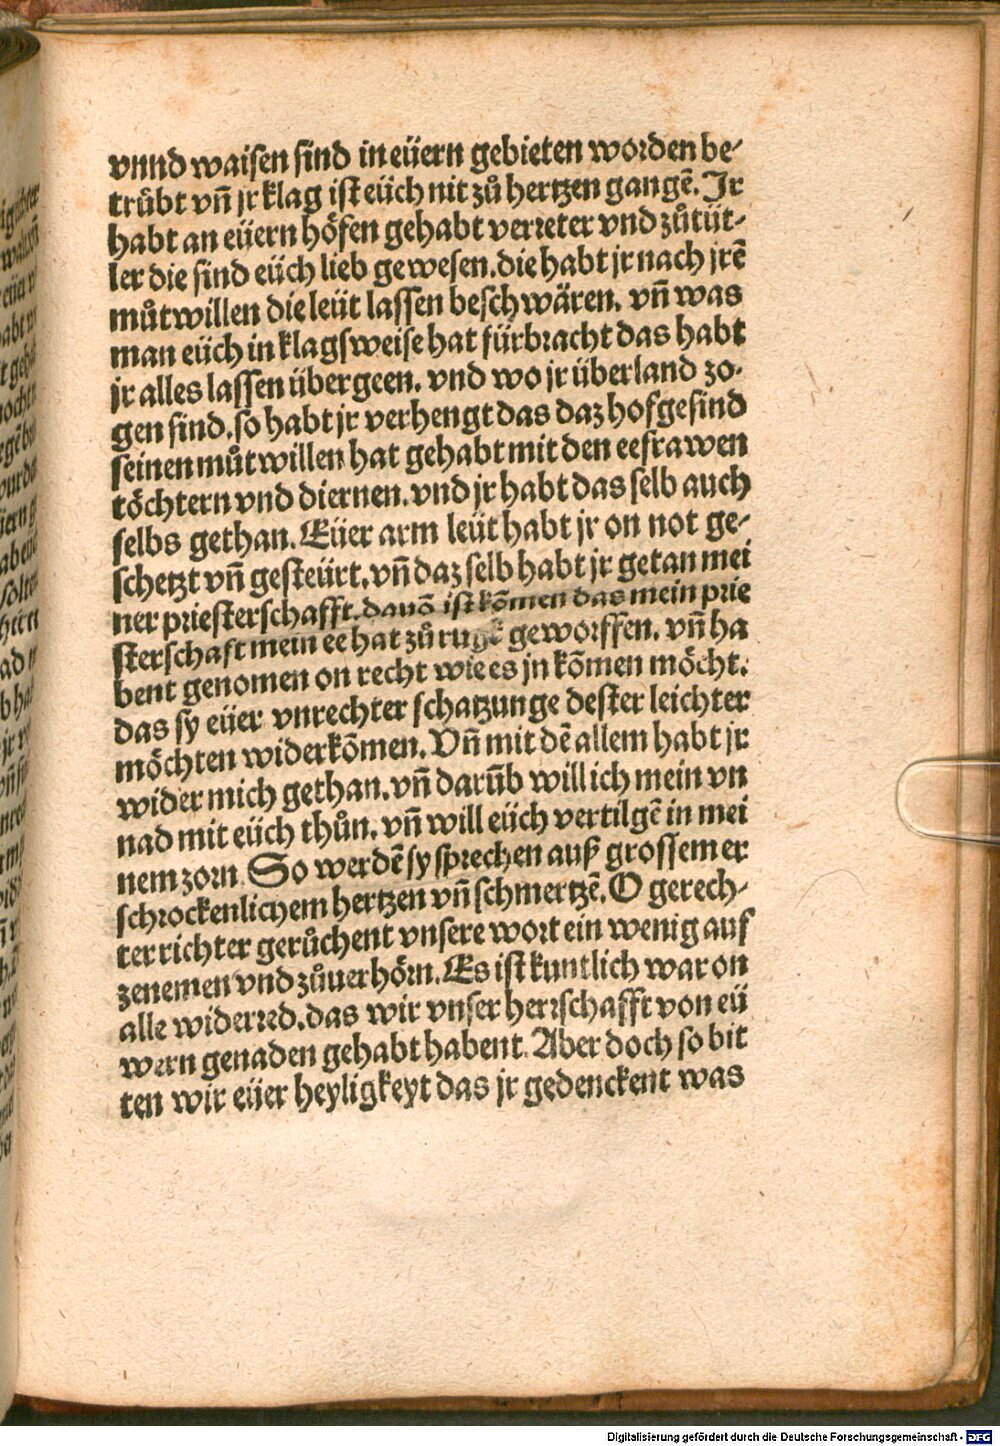 vnnd waisen sind in eüern gebieten worden be⸗
trůbt vñ jr klag ist eüch nit zů hertzen gangē. Jr
habt an eüern höfen gehabt verreter vnd zůtüt⸗
ler die sind eüch lieb gewesen. die habt jr nach jrē
můtwillen die leüt lassen beschwären. vñ was
man eüch in klagsweise hat fürbracht das habt
jr alles lassen übergeen. vnd wo jr überland zo⸗
gen sind. so habt jr verhengt das daz hofgesind
seinen můtwillen hat gehabt mit den eefrawen
töchtern vnd diernen. vnd jr habt das selb auch
selbs gethan. Eüer arm leüt habt jr on not ge⸗
schetzt vñ gesteürt. vñ daz selb habt jr getan mei
ner priesterschafft. dauō ist kōmen das mein prie
sterschaft mein ee hat zů rugk geworffen. vñ ha
bent genomen on recht wie es jn kōmen möcht.
das sy eüer vnrechter schatzunge dester leichter
möchten widerkōmen. Vñ mit dē allem habt jr
wider mich gethan. vñ darūb will ich mein vn
nad mit eüch thůn. vñ will eüch vertilgē in mei
nem zorn. So werdē sy sprechen auß grossem er
schrockenlichem hertzen vñ schmertzē. O gerech⸗
ter richter gerůchent vnsere wort ein wenig auf
zenemen vnd zůuerhörn. Es ist kuntlich war on
alle widerred. das wir vnser herrschafft von eü
wern genaden gehabt habent. Aber doch so bit
ten wir eüer heyligkeyt das jr gedenckent was
Digitalisierung gefördert durch die Deutsche Forschungsgemeinschaft - DFG